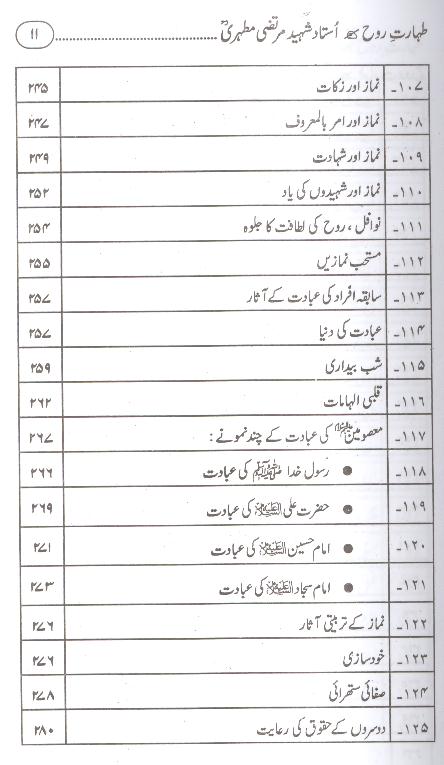 طہارتِ روح ۞ اُستاد شہید مرتضیٰ مطہریؒ ........................................ ۱۱
۱۰۷۔ نماز اور زکات ۲۴۵
۱۰۸۔ نماز اور امر بالمعروف ۲۴۷
۱۰۹۔ نماز اور شہادت ۲۴۹
۱۱۰۔ نماز اور شہیدوں کی یاد ۲۵۲
۱۱۱۔ نوافل ، روح کی لطافت کا جلوہ ۲۵۴
۱۱۲۔ مستحب نمازیں ۲۵۵
۱۱۳۔ سابقہ افراد کی عبادت کے آثار ۲۵۷
۱۱۴۔ عبادت کی دنیا ۲۵۷
۱۱۵۔ شب بیداری ۲۵۹
۱۱۶۔ قلبی الہامات ۲۶۲
۱۱۷۔ معصومینؑ کی عبادت کے چند نمونے : ۲۶۷
۱۱۸۔ ● رسول خدا ﷺ کی عبادت ۲۶۶
۱۱۹۔ ● حضرت علی علیہ السلام کی عبادت ۲۶۹
۱۲۰۔ ● امام حسین علیہ السلام کی عبادت ۲۷۱
۱۲۱۔ ● امام سجاد علیہ السلام کی عبادت ۲۷۳
۱۲۲۔ نماز کے تربیتی آثار ۲۷۶
۱۲۳۔ خود سازی ۲۷۶
۱۲۴۔ صفائی ستھرائی ۲۷۸
۱۲۵۔ دوسروں کے حقوق کی رعایت ۲۸۰